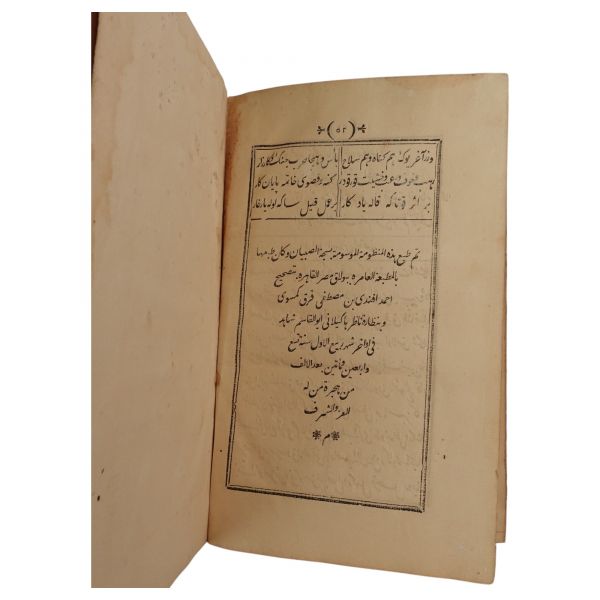 (٥٢)
وزر آغر يوكه هم كناه وهم سلاح
بأس وهيجا حرب جنك وكارزار
رهب وخوف
كنه وقصوى خاتمه پايان كار
بر اثر قناكه قاله ياد كار
بر عمل قيل ساكه اوله يار غار
تم طبع هذه المنظومة الموسومة بسبحة الصبيان وكان طبعها
بالمطبعة العامرة ببولاق مصر القاهرة بتصحيح
احمد افندى بن مصطفى فرق كمسوى
وبنظارة ناظرها كيلانى ابو القاسم شاهد
فى اواخر شهر ربيع الاول سنة تسع
واربعين ومائتين بعد الالف
من هجرة من له
العز والشرف
م